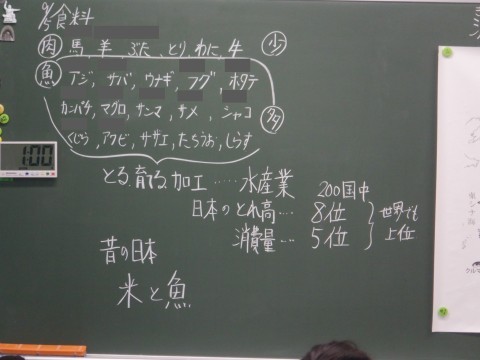 9/5 食料
肉 馬、羊 ぶた、とり、わに、牛 少
魚 アジ、サバ、ウナギ、フグ、ホタテ
カンパチ、マグロ、サンマ、サメ、シャコ 多
くじら、アワビ、サザエ、たちうお、しらす
とる、育てる、加工……水産業 200国中
日本のとれ高…8位 世界でも
消費量…5位 上位
昔の日本
米と魚
1:00